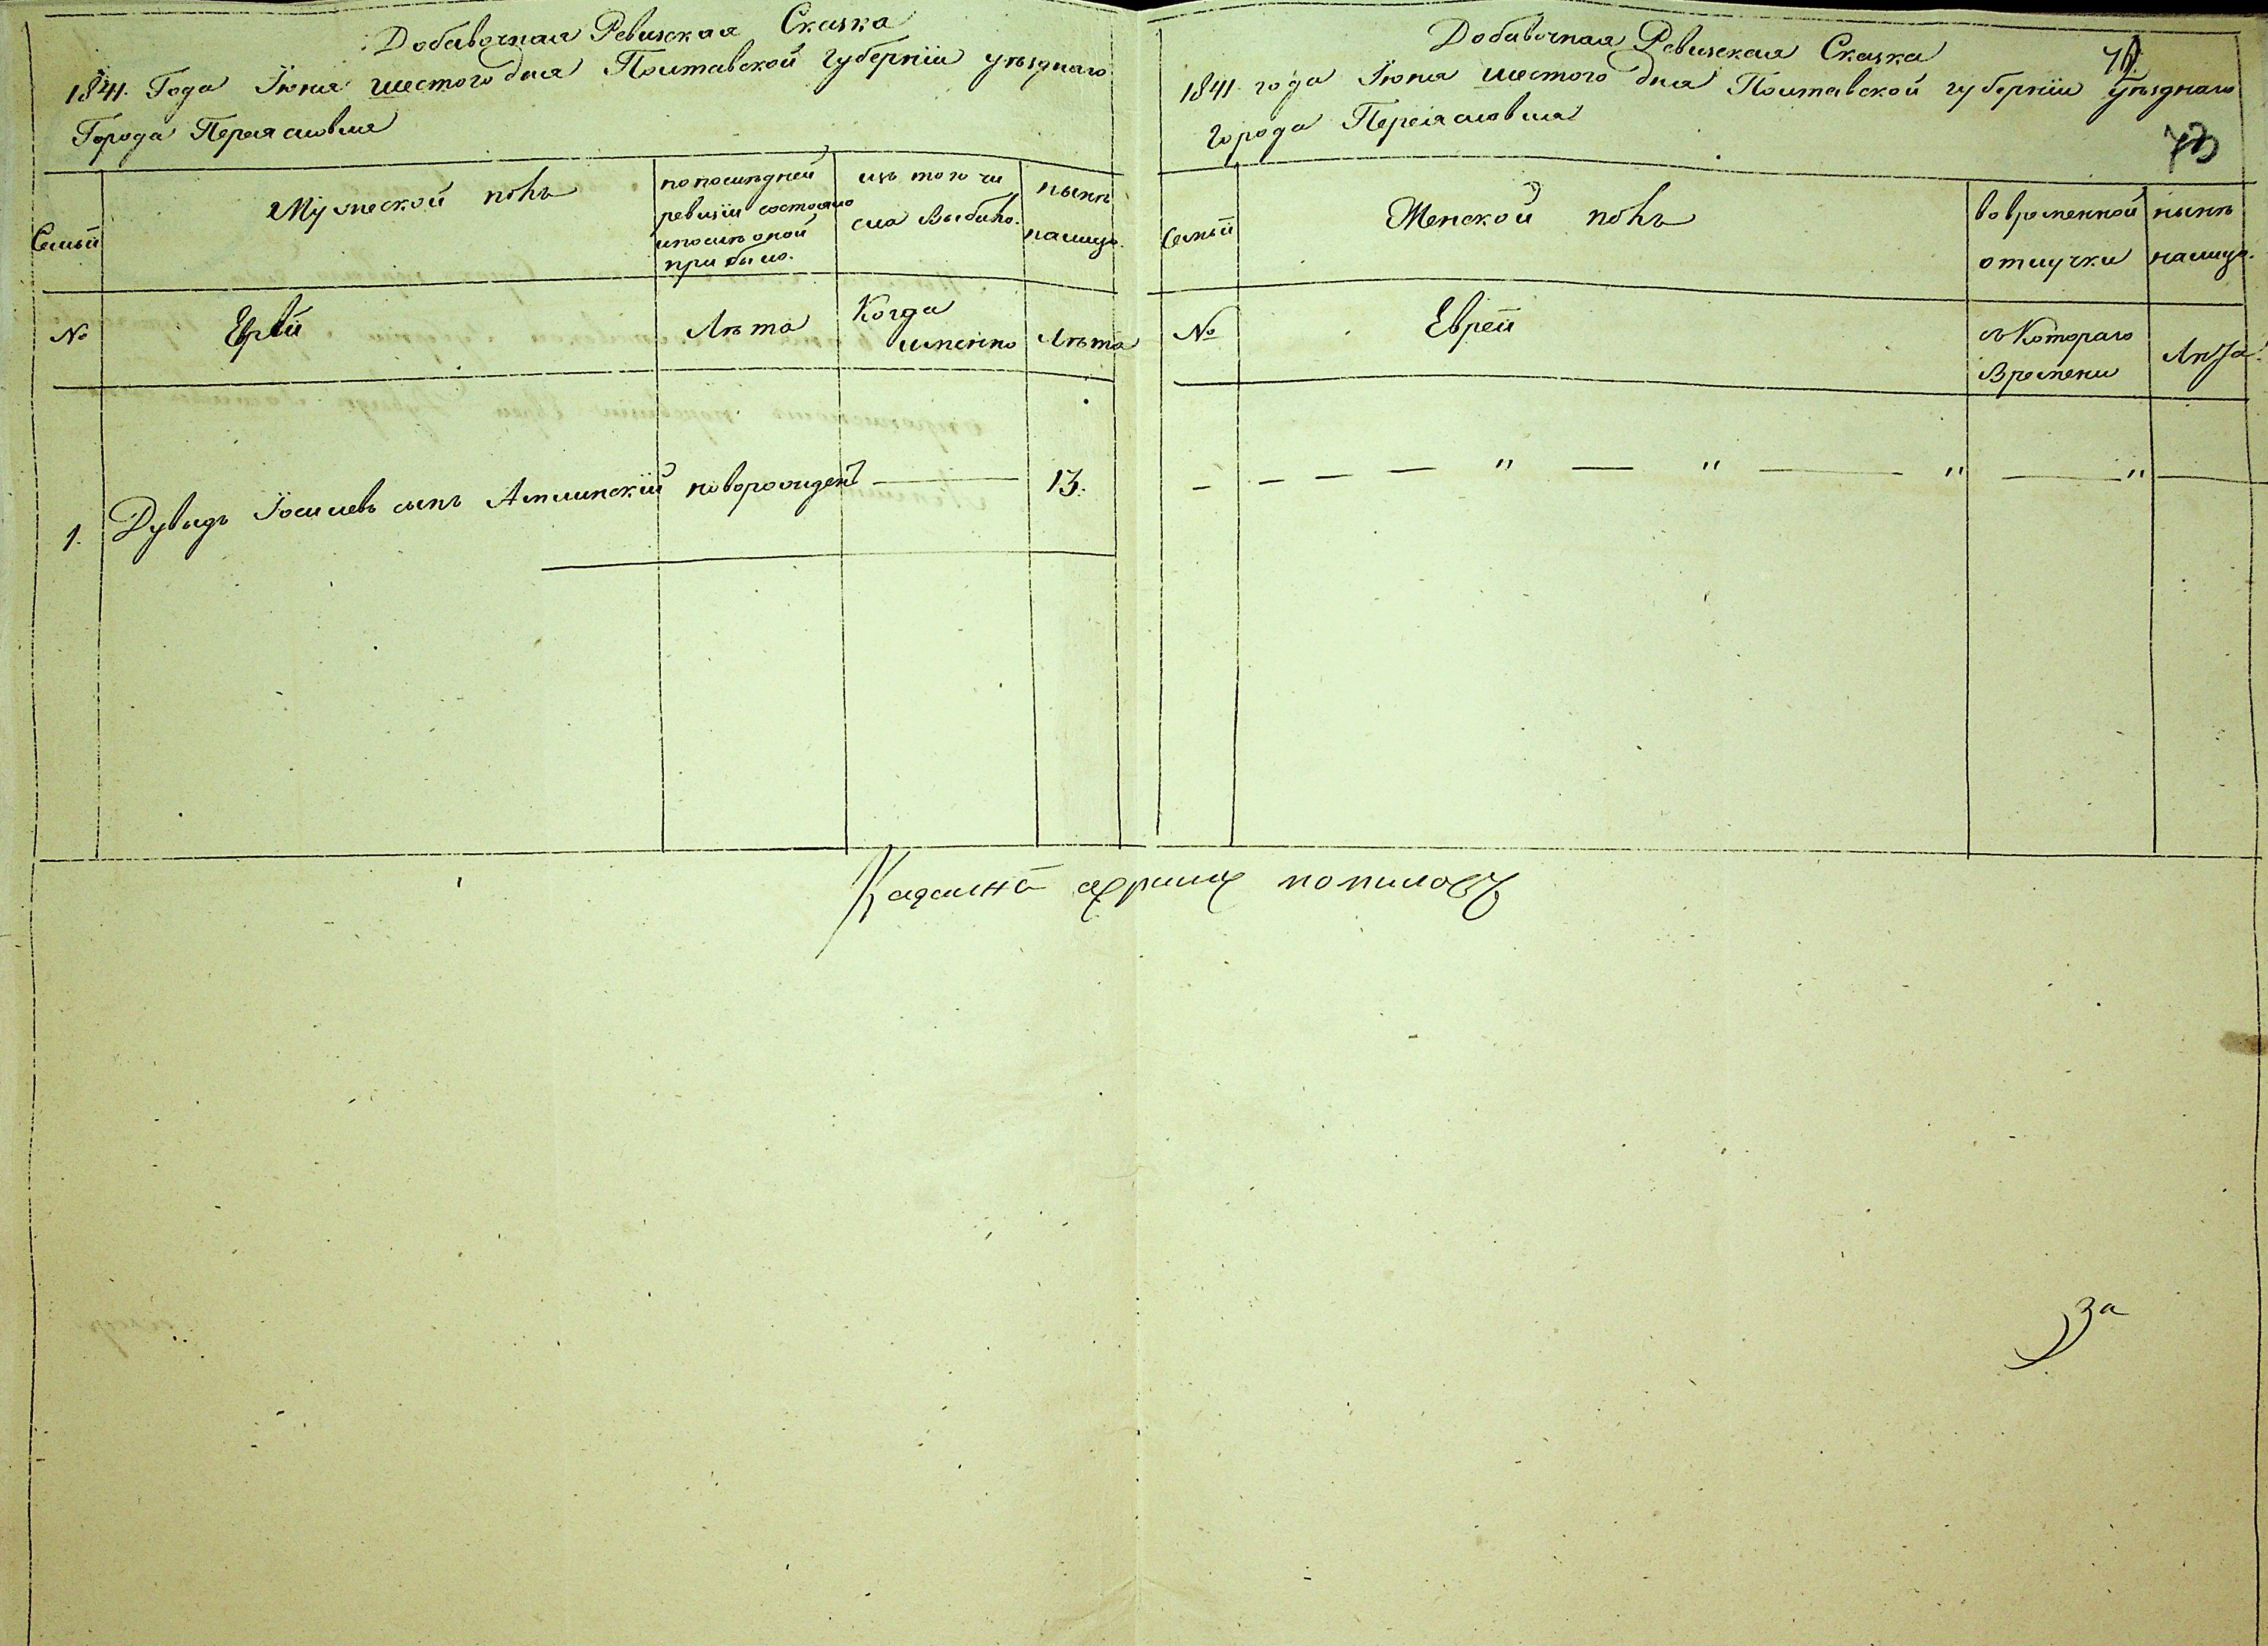 Добавочная Ревизская Сказка
1841. Года Іюня шестого дня Полтавской Губерніи уѣзднаго
Города Переяславля
Семьи
Мужеской полъ
по последней
ревизіи состояло
и после оной
прибыло.
изъ того чи
сла выбыло.
нынѣ
налицо.
№
Еврей
Лѣта
Когда
именно
Лѣта
1.
Дувидъ Іосиовъ сынъ новорожденъ
13.
Добавочная Ревизская Сказка
1841 года Іюня шестого дня Полтавской губерніи уѣзднаго
города Переяславля
73
Семьи
Женской полъ
во временной
отлучки
нынѣ
налицо.
№
Еврей
съ Котораго
Времени
Лѣта
— — — — " — " — " — " —
За